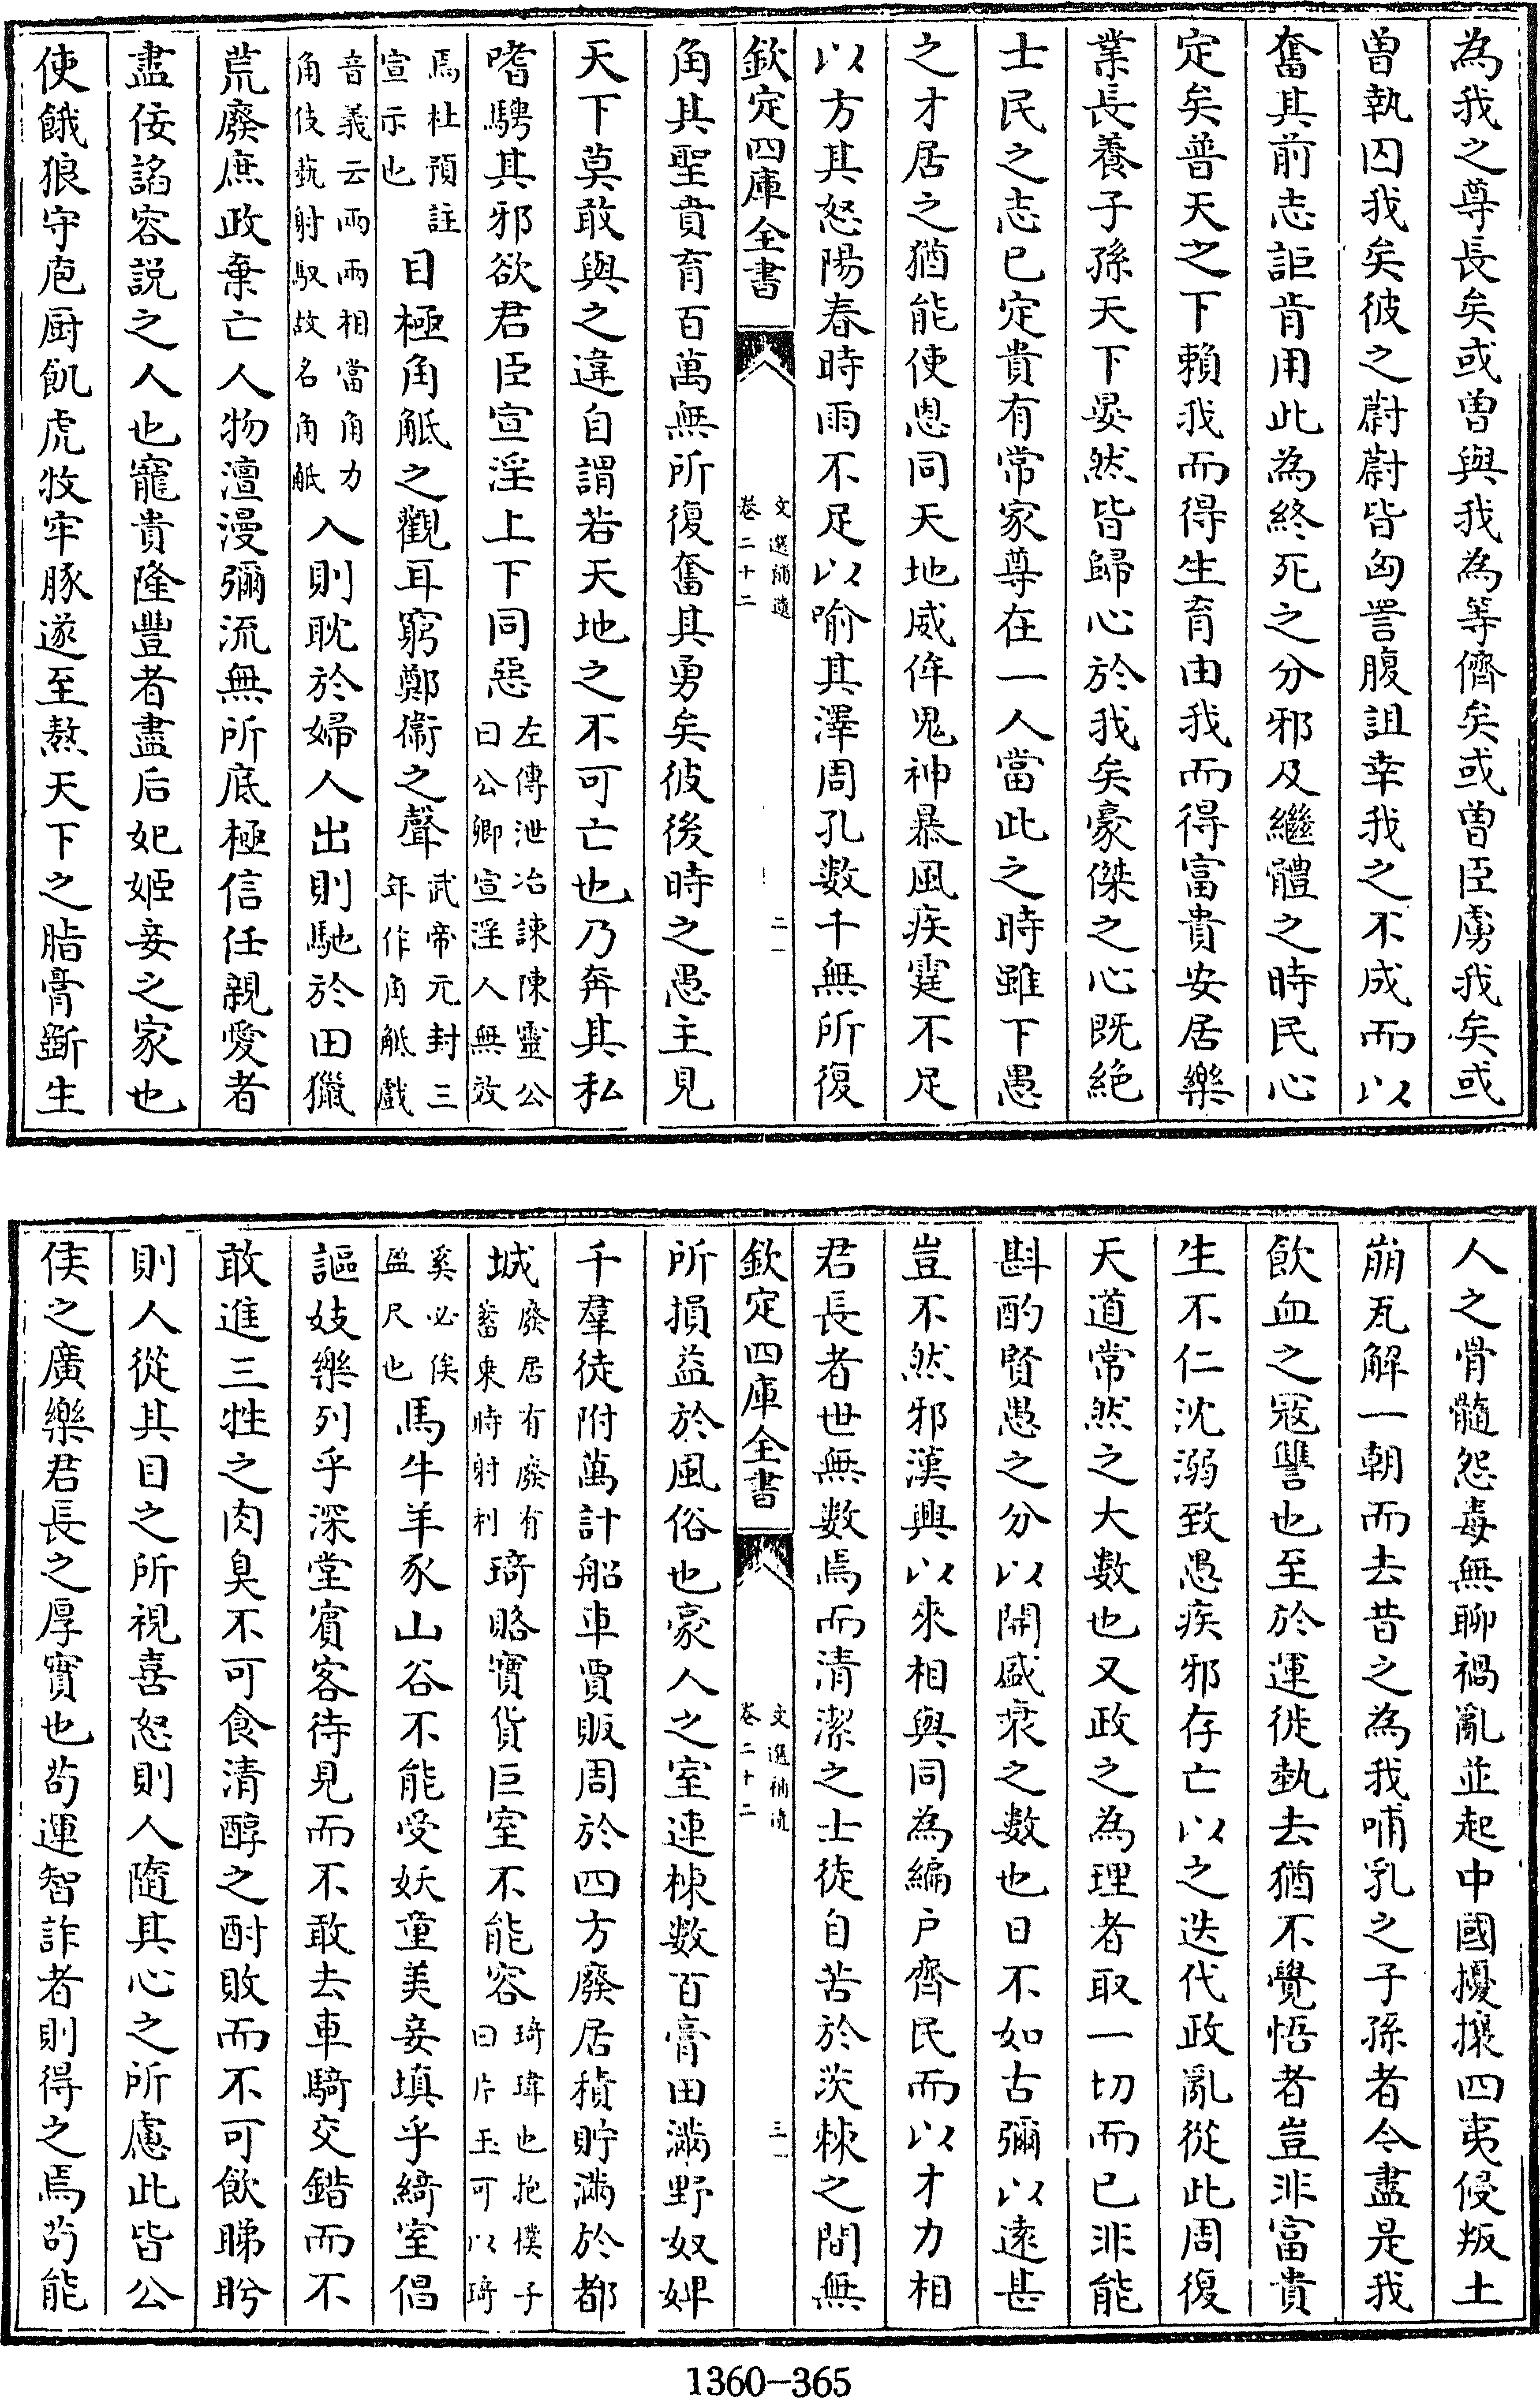 為我之尊長矣或曽與我為等儕矣或曽臣虜我矣或
曽執囚我矣彼之蔚蔚皆匈詈腹詛幸我之不成而以
奮其前志詎肯用此為終死之分邪及繼體之時民心
定矣普天之下賴我而得生育由我而得富貴安居樂
業長養子孫天下晏然皆歸心於我矣豪傑之心既絶
士民之志已定貴有常家尊在一人當此之時雖下愚
之才居之猶能使恩同天地威侔鬼神暴風疾霆不足
以方其怒陽春時雨不足以喻其澤周孔数千無所復
欽定四庫全書
文選補遺
卷二十二
二
角其聖賁育百萬無所復奮其勇矣彼後時之愚主見
天下莫敢與之違自謂若天地之不可亡也乃奔其私
嗜騁其邪欲君臣宣淫上下同惡左傳泄冶諫陳靈公曰公卿宣淫人無效
焉杜預註宣示也目極角觝之觀耳窮鄭衞之聲武帝元封三年作角觝戲
音義云兩兩相當角力角伎藝射馭故名角觝入則耽於婦人出則馳於田獵
荒廢庶政棄亡人物澶漫彌流無所底極信任親愛者
盡佞諂容説之人也寵貴隆豐者盡后妃姬妾之家也
使餓狼守庖厨飢虎牧牢豚遂至熬天下之脂膏斲生
人之骨髓怨毒無聊禍亂並起中國擾攘四夷侵叛土
崩瓦解一朝而去昔之為我哺乳之子孫者今盡是我
飲血之冦讐也至於運徙埶去猶不覺悟者豈非富貴
生不仁沈溺致愚疾邪存亡以之迭代政亂從此周復
天道常然之大数也又政之為理者取一切而已非能
斟酌賢愚之分以開盛衰之數也日不如古彌以逺甚
豈不然邪漢興以來相與同為編户齊民而以才力相
君長者世無数焉而清潔之士徒自苦於茨棘之間無
欽定四庫全書
文選補遺
卷二十二
三
所損益於風俗也豪人之室連棟数百膏田滿野奴婢
千羣徒附萬計船車賈販周於四方廢居積貯滿於都
城廢居有廢有蓄乗時射利琦賂寶貨巨室不能容琦瑋也抱樸子曰片玉可以琦
奚必俟盈尺也馬牛羊豕山谷不能受妖童美妾填乎綺室倡
謳妓樂列乎深堂賓客待見而不敢去車騎交錯而不
敢進三牲之肉臭不可食清醇之酎敗而不可飲睇盻
則人從其目之所視喜怒則人隨其心之所慮此皆公
侯之廣樂君長之厚實也茍運智詐者則得之焉茍能
1360-365